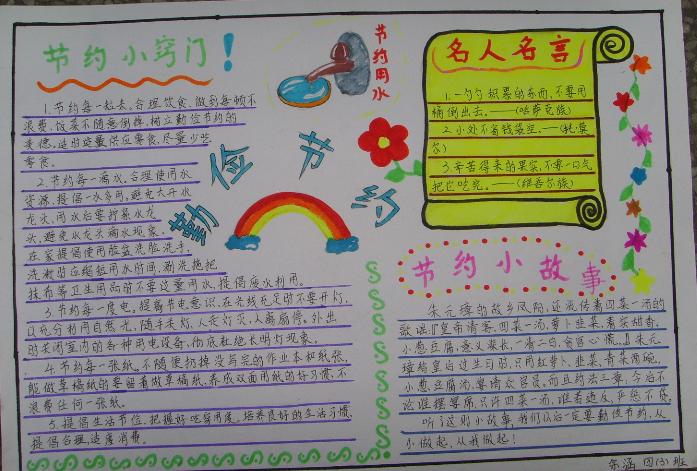 节约小窍门!
1.节约每一粒米,合理饮食,做到每顿不
浪费,饭菜不随意倒掉,树立勤俭节约的
美德,适时适量供应零食,尽量少吃
零食。
2.节约每一滴水,合理使用水
资源,提倡一水多用,避免大开水
龙头,用水后要拧紧水龙
头,避免水龙头滴水现象。
在家提倡使用脸盆洗脸洗手,
洗澡时应缩短用水时间,涮洗拖把
抹布等卫生用品时不要过量用水,提倡废水利用。
3.节约每一度电。提高节电意识,在光线充足时不要开灯,
以充分利用自然光,随手关灯,人走灯灭,人离扇停。外出
时关闭室内的各种用电设备,彻底杜绝长明灯现象。
4.节约每一张纸。不随便扔掉没写完的作业本和纸张,
能做草稿纸的要留着做草稿纸,养成双面用纸的好习惯,不
浪费任何一张纸。
5.提倡生活节俭,把握好吃穿用度,培养良好的生活习惯,
提倡合理,适度消费。
节约用水
勤俭节约
名人名言
1.一勺勺积累的东西,不要用
桶倒出去。——(哈萨克族)
2.小处不省钱袋空。——(托莫
尔)
3.辛苦得来的果实,不要一口气
把它吃完。——(维吾尔族)
节约小故事
朱元璋的故乡凤阳,还流传着四菜一汤的
歌谣:“皇帝请客,四菜一汤,萝卜韭菜,着实甜香,
小葱豆腐,意义深长,一清二白,贪官心慌。”朱元
璋给皇后过生日时,只用红萝卜、韭菜,青菜两碗,
小葱豆腐汤,宴请众官员,而且约法三章,今后不
论谁摆宴席,只许四菜一汤,谁若违反,严惩不贷。
听了这则小故事,我们以后一定要勤俭节约,从
小做起,从我做起!
四(3)班